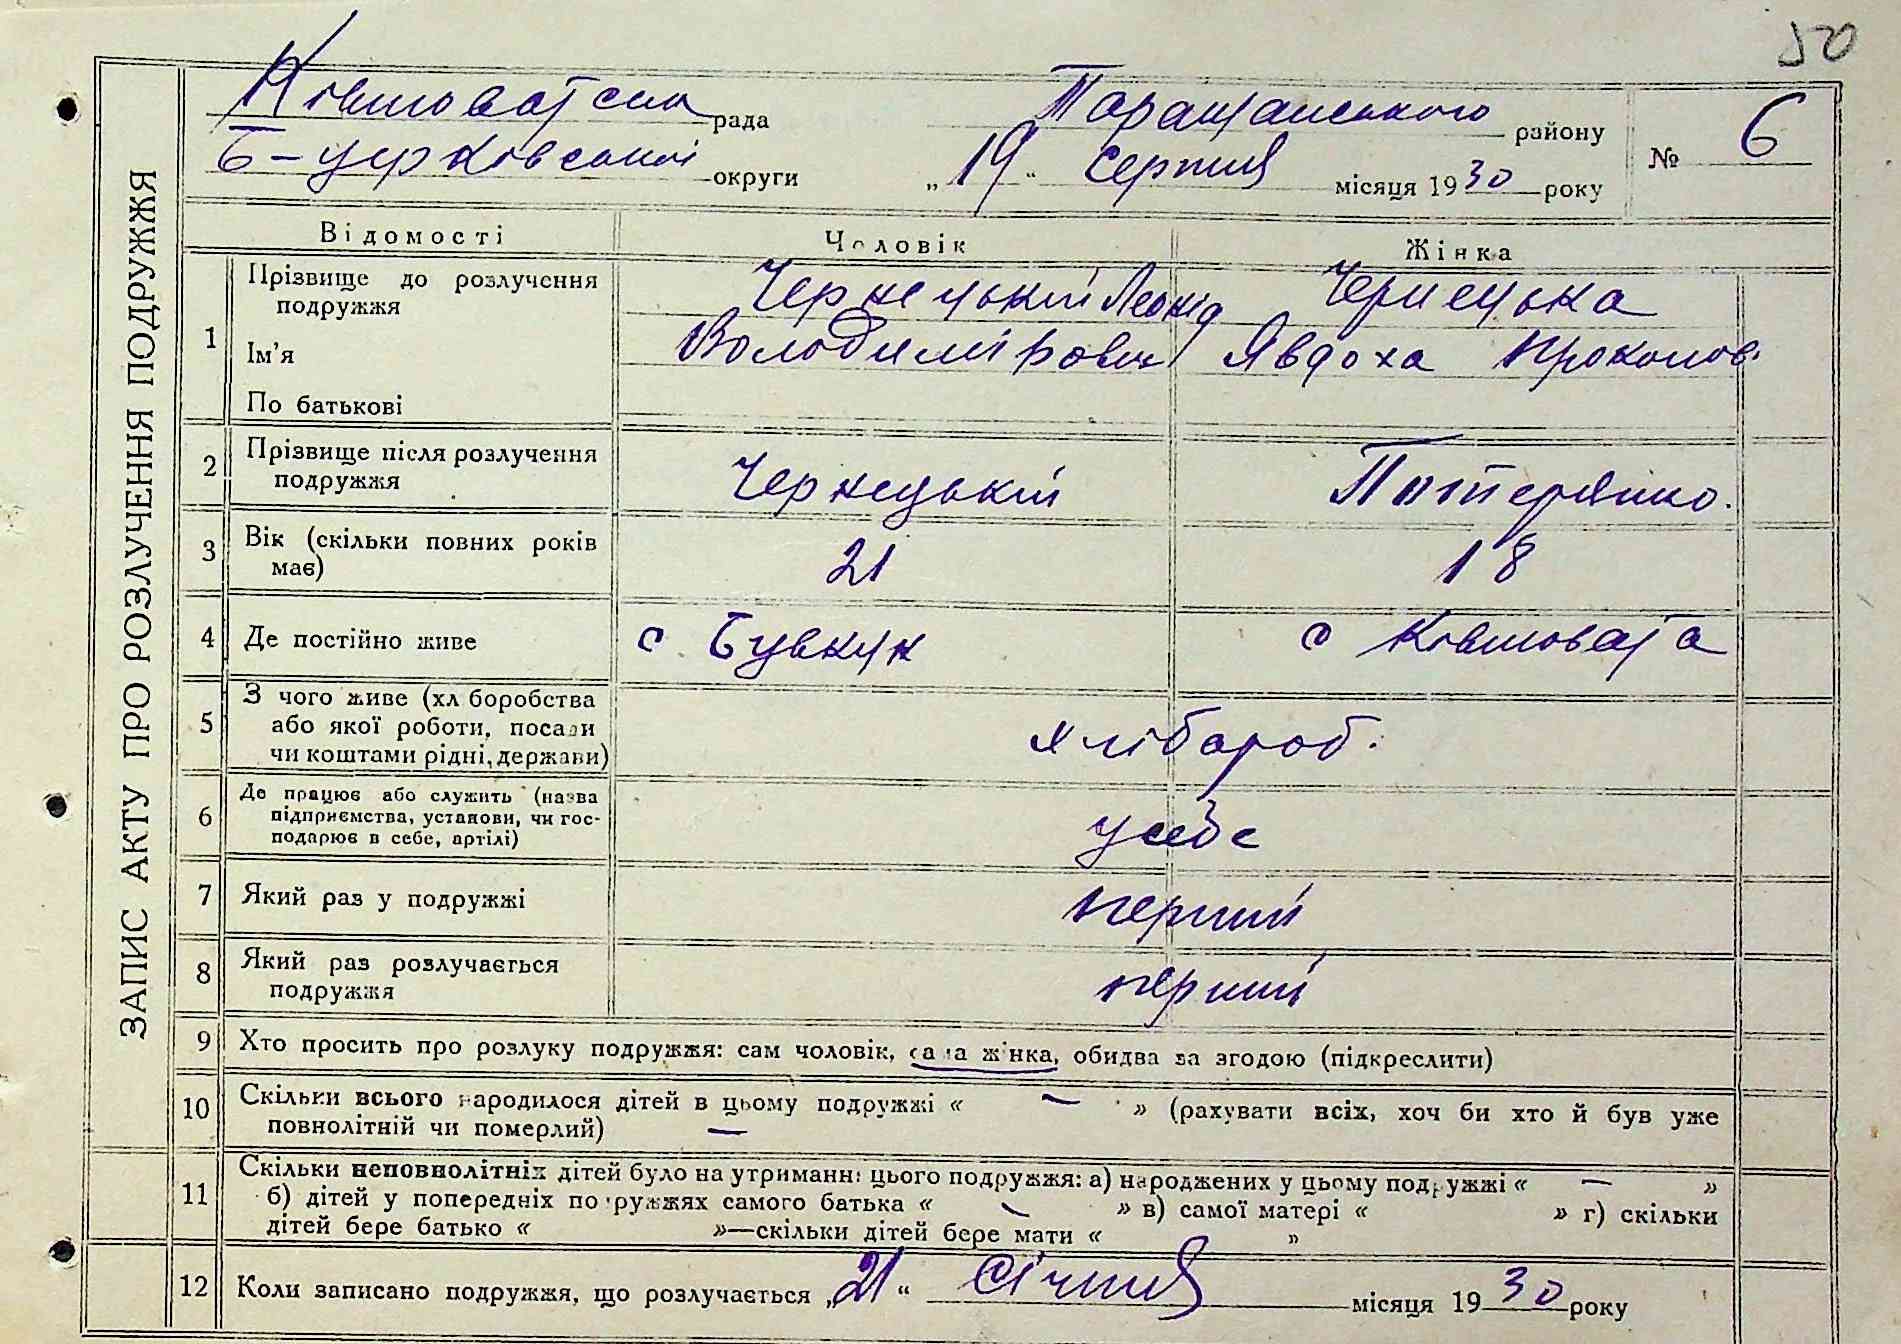 50
ЗАПИС АКТУ ПРО РОЗЛУЧЕННЯ ПОДРУЖЖЯ
Ківшоватська рада Таращанського району № 6
Б-Церківської округи „19“ серпня місяця 1930 року
Відомості Чоловік Жінка
1 Прізвище до розлучення подружжя Чернецький Леонід Чернецька
Ім'я Володимірович Явдоха Прокопов.
По батькові
2 Прізвище після розлучення подружжя Чернецькій
3 Вік (скільки повних років має) 21 18
4 Де постійно живе с. Бувкун с Ківшовата
5 З чого живе (хліборобства
або якої роботи, посади хлібароб.
чи коштами рідні, держави)
6 Де працює або служить (назва
підприємства, установи, чи гос- у себе
подарює в себе, артілі)
7 Який раз у подружжі перший
8 Який раз розлучається подружжя перший
9 Хто просить про розлуку подружжя: сам чоловік, сама жінка, обидва за згодою (підкреслити)
10 Скільки всього народилося дітей в цьому подружжі « — » (рахувати всіх, хоч би хто й був уже
повнолітній чи померлий) —
11 Скільки неповнолітніх дітей було на утриманні цього подружжя: а) народжених у цьому подружжі « — »
б) дітей у попередніх подружжях самого батька « — » в) самої матері « » г) скільки
дітей бере батько « »—скільки дітей бере мати « »
12 Коли записано подружжя, що розлучається „21“ січня місяця 1930 року